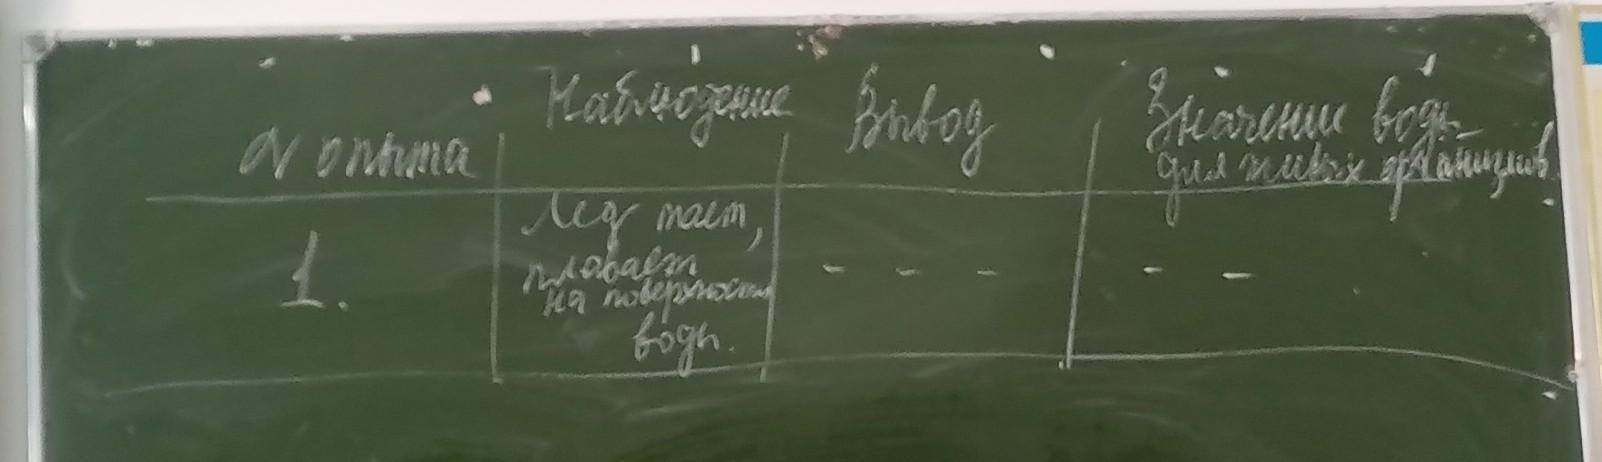 N опыта
Наблюдение
Вывод
Значение воды
для живых организмов.
1.
Лед тает,
плавает
на поверхности
воды.
- - -
- -